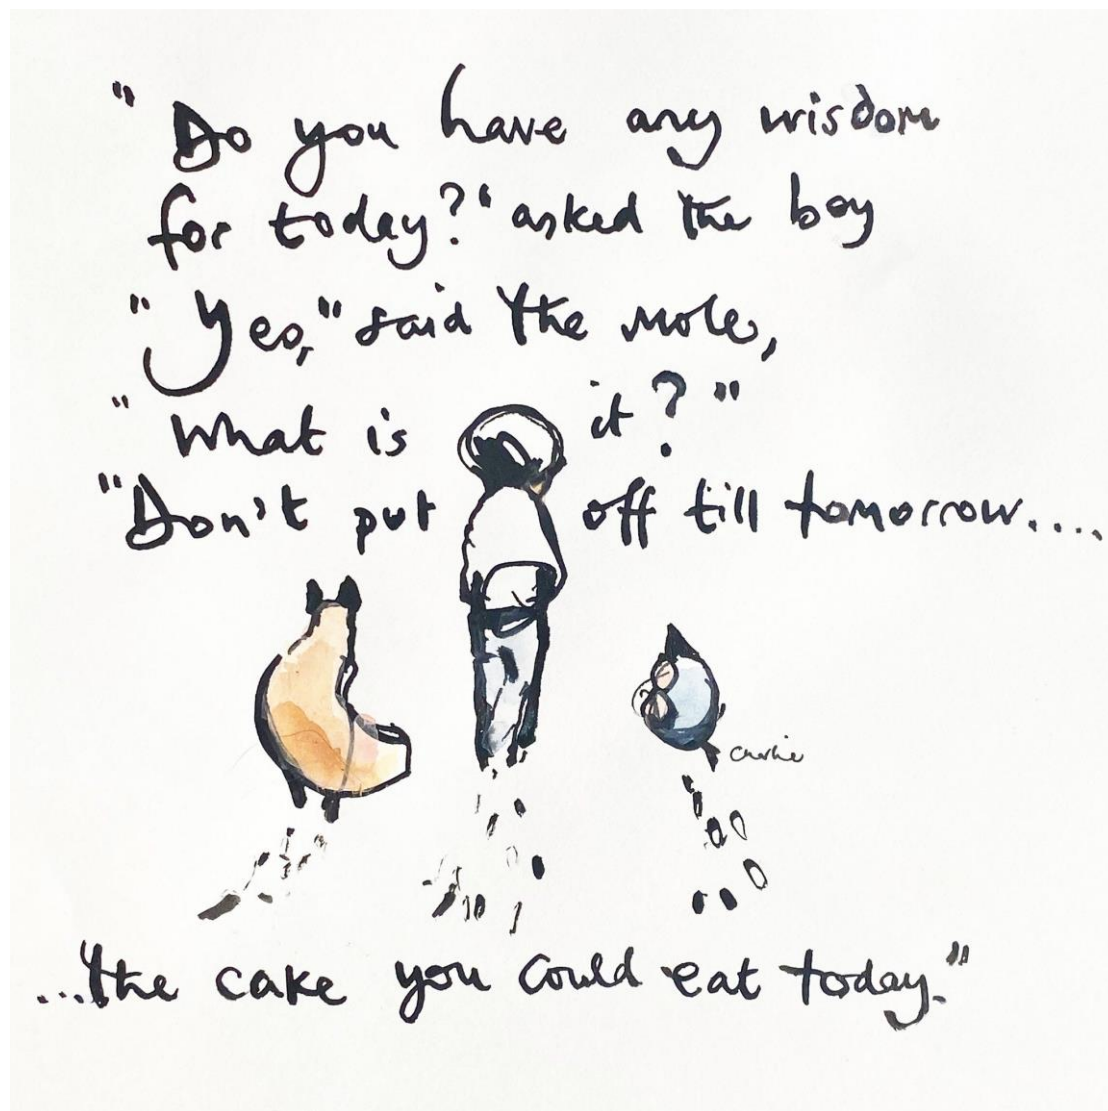 "Do you have any wisdom
for today?" asked the boy
"Yes," said the mole,
"What is it?"
"Don't put off till tomorrow....
Charlie
...the cake you could eat today."